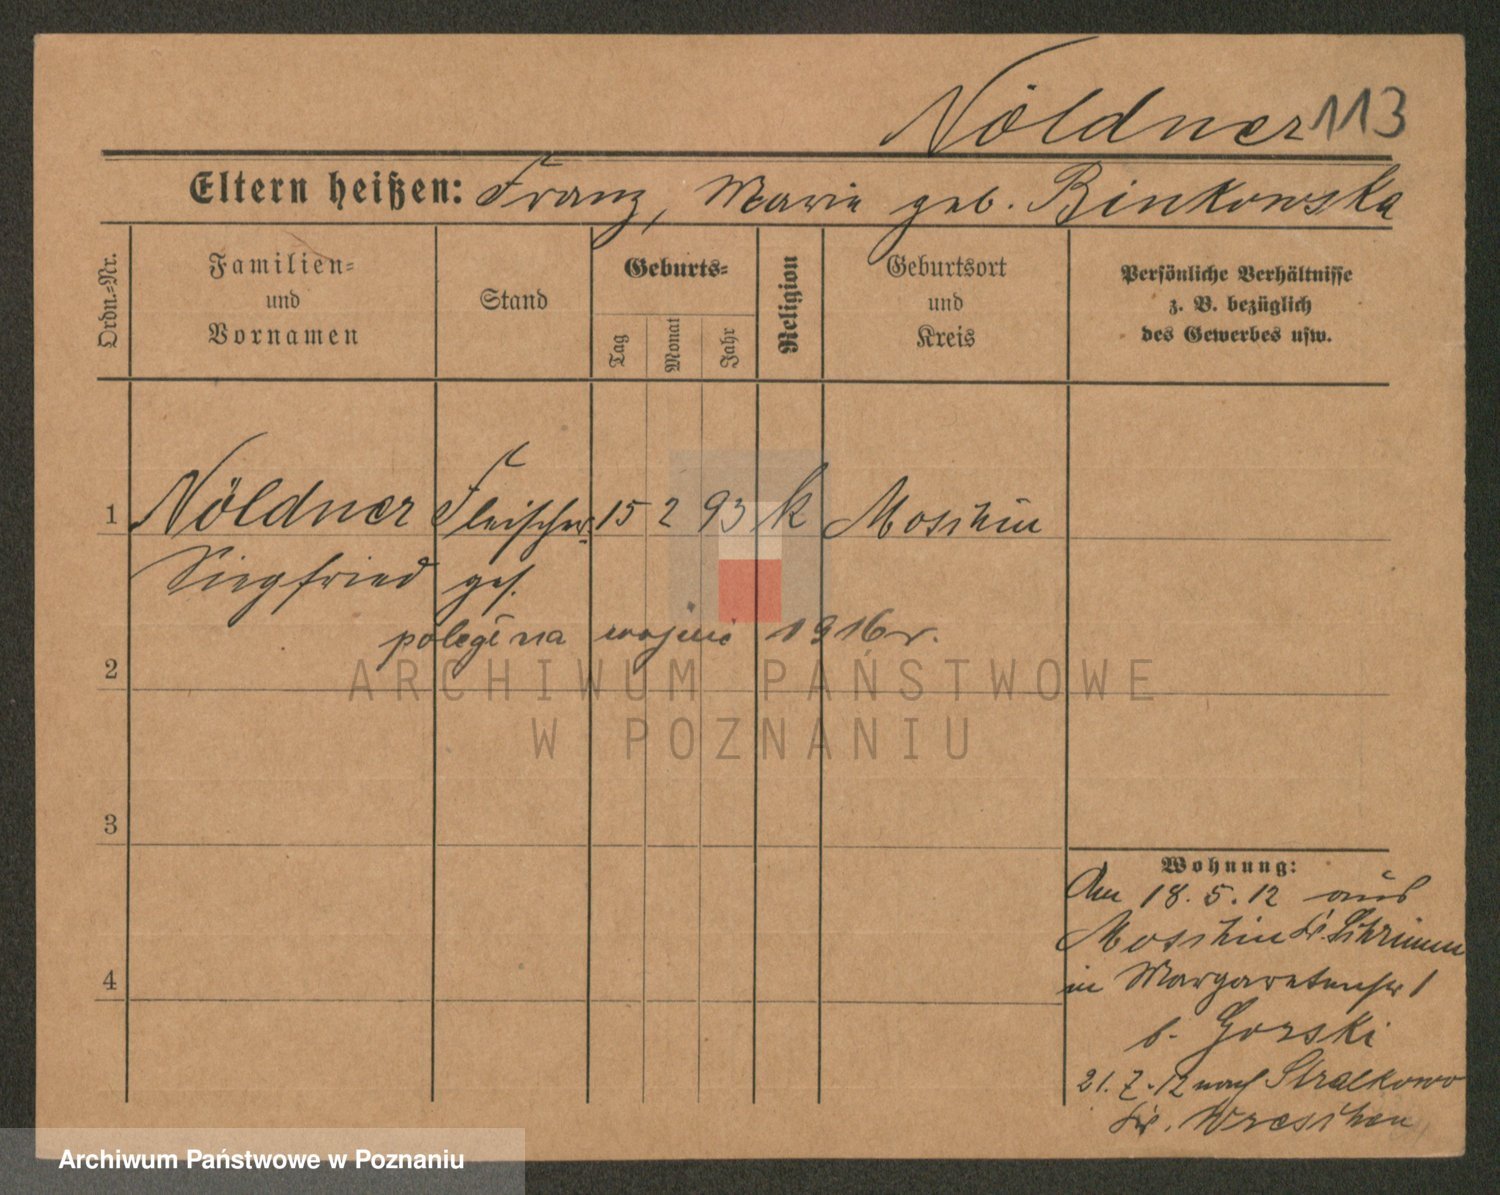 Nöldner 113
Eltern heißen: Franz, Marie geb. Binkowska
Ordn.-Nr.
Familien-
und
Vornamen
Stand
Geburts-
Tag
Monat
Jahr
Religion
Geburtsort
und
Kreis
Persönliche Verhältnisse
z. B. bezüglich
des Gewerbes usw.
1 Nöldner Fleischer 15 2 93 k Moschin
Siegfried ges.
poległ na wojnie 1916 r.
2
ARCHIWUM PAŃSTWOWE
W POZNANIU
3
Wohnung:
Am 18.5.12 aus
Moschin Kr. Schrimm
in Margaretenstr 1
b. Gorski
21.7.12 nach Stralkowo
Kr. Wreschen
4
Archiwum Państwowe w Poznaniu